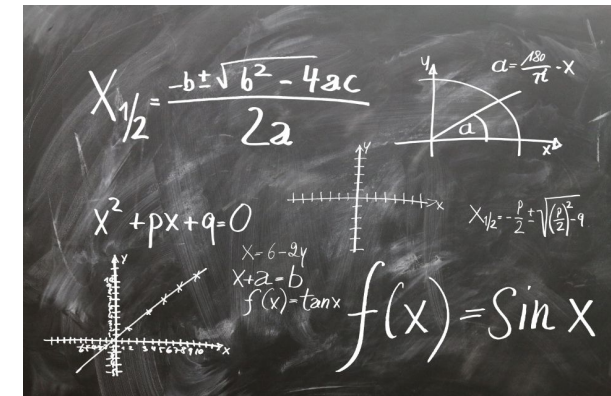 X₁/₂ = (-b ± √(b² - 4ac)) / 2a
y
a = 180/π · x
a
x
y
x
x² + px + q = 0
X₁/₂ = - p/2 ± √((p/2)² - q)
x = 6 - 2y
x + a = b
f(x) = tan x
f(x) = Sin x
y
x